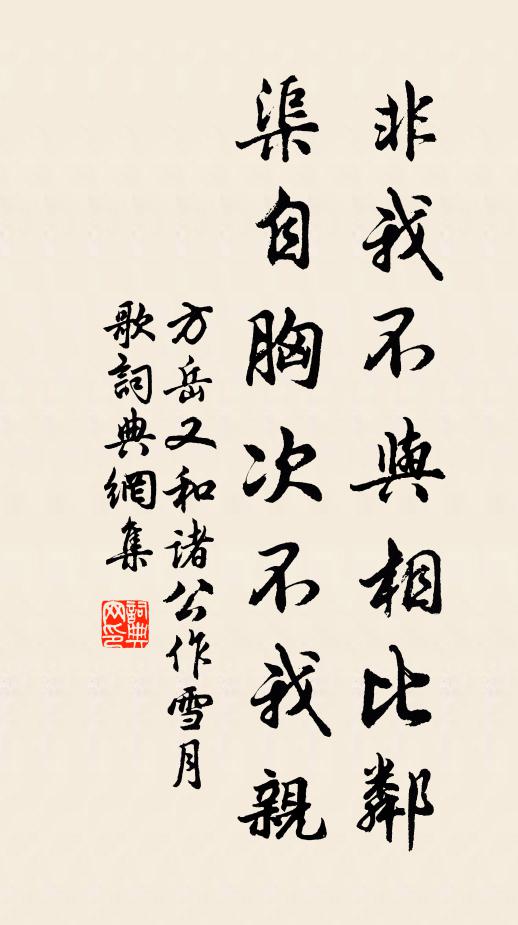 非我不與相比鄰
渠自胸次不我親
方岳又和諸公作雪月
歌詞典網集
詞典
网印